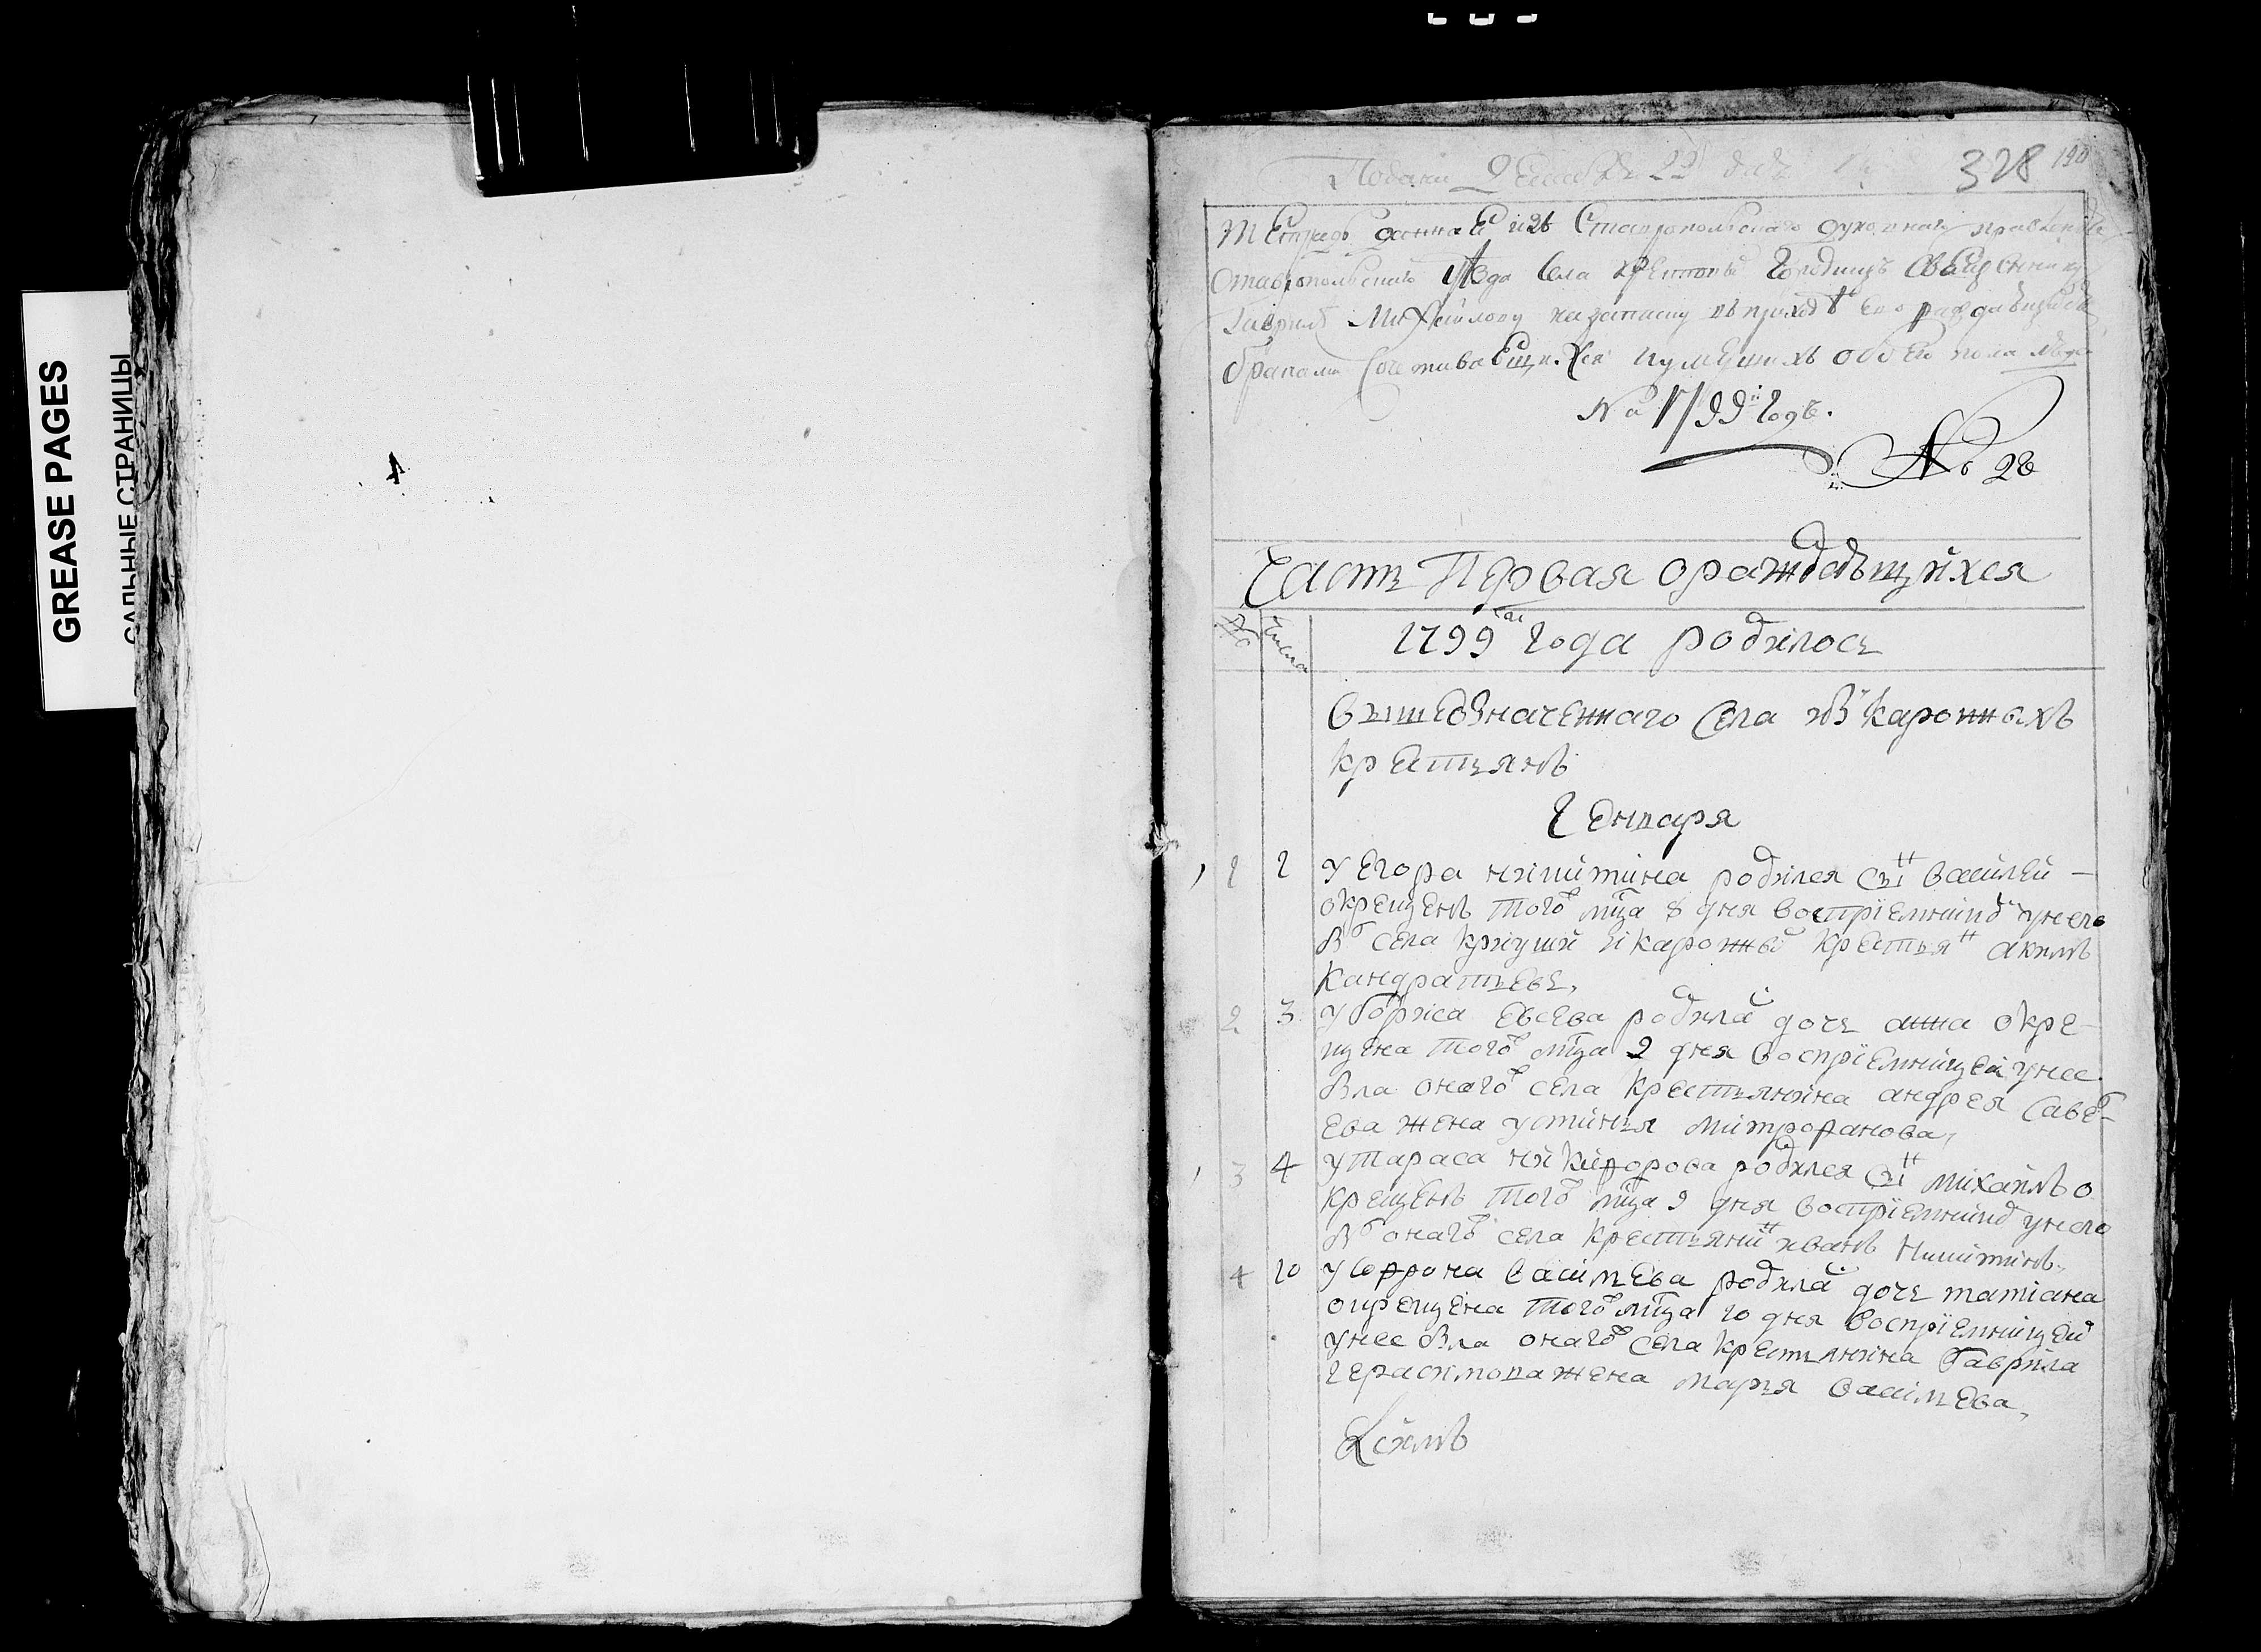 GREASE PAGES
САЛЬНЫЕ СТРАНИЦЫ
328 190
Тетрадь данная изъ Ставропольскаго духовнаго правления
Ставропольскаго уезда села Хрещовы Городищь священнику
Гаврилѣ Михайлову на записку въ приходѣ его раждающихся
браками сочетавающихся и умершихъ обоего пола людей
На 1799й годъ.
№ 28
Часть Первая о раждающихся
№
Числа
1799 года родилось
вышеозначеннаго села из экароножныхъ
крестьянъ
Генваря
1 1 у Егора никитина родился сын василей –
окрещенъ того мца 8 дня воспрiемникъ у него
был села криуши экароножный крестьянин акимъ
кандратьевъ,
2 3 у бориса евсева родилась дочь анна окре-
щена того мца 9 дня воспрiемницей у нее
была онаго села крестьянина андрея савел-
ева жена устинья митрофанова,
3 4 у тараса никифорова родился сын михаилъ о
крещенъ того мца 9 дня воспрiемникъ у него
был онаго села крестьянин иванъ никитинъ,
4 10 у софрона васильева родилась дочь татiана
окрещена того мца 10 дня воспрiемницей
у нее была онаго села крестьянина гаврила
герасимова жена марья васильева,